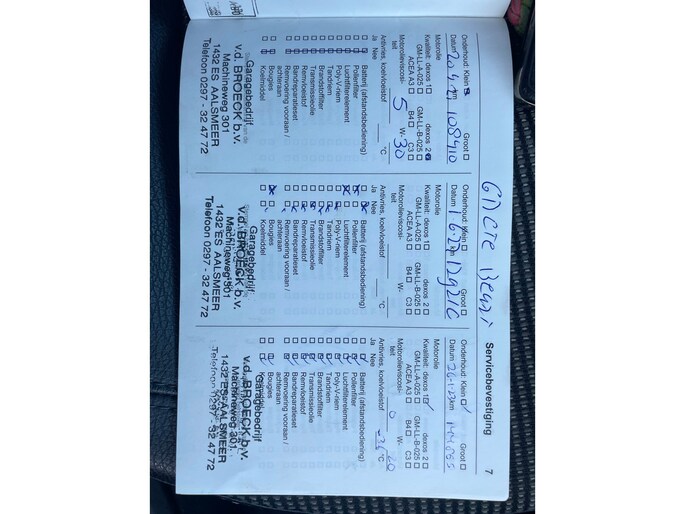 Servicebevestiging 7
Onderhoud: Klein Groot
Datum 20.4.21 km 108910
Motorolie
Kwaliteit: dexos 1 dexos 2
GM-LL-A-025 GM-LL-B-025
ACEA A3 B4 C3
Motorolieviscosi-
teit 5 W- 30
Antivries, koelvloeistof °C
Ja Nee
Batterij (afstandsbediening)
Pollenfilter
Luchtfilterelement
Poly-V-riem
Tandriem
Brandstoffilter
Transmissieolie
Remvloeistof
Bandreparatieset
Remvoering vooraan /
achteraan
Bougies
Koelmiddel
Garagebedrijf
v.d. BROECK b.v.
Machineweg 301
1432 ES AALSMEER
Telefoon 0297 - 32 47 72
Onderhoud: Klein Groot
Datum km
Motorolie
Kwaliteit: dexos 1 dexos 2
GM-LL-A-025 GM-LL-B-025
ACEA A3 B4 C3
Motorolieviscosi-
teit W-
Antivries, koelvloeistof °C
Ja Nee
Batterij (afstandsbediening)
Pollenfilter
Luchtfilterelement
Poly-V-riem
Tandriem
Brandstoffilter
Transmissieolie
Remvloeistof
Bandreparatieset
Remvoering vooraan /
achteraan
Bougies
Koelmiddel
Garagebedrijf
v.d. BROECK b.v.
Machineweg 301
1432 ES AALSMEER
Telefoon 0297 - 32 47 72
Onderhoud: Klein Groot
Datum km
Motorolie
Kwaliteit: dexos 1 dexos 2
GM-LL-A-025 GM-LL-B-025
ACEA A3 B4 C3
Motorolieviscosi-
teit 0 W- 20
Antivries, koelvloeistof °C
Ja Nee
Batterij (afstandsbediening)
Pollenfilter
Luchtfilterelement
Poly-V-riem
Tandriem
Brandstoffilter
Transmissieolie
Remvloeistof
Bandreparatieset
Remvoering vooraan /
achteraan
Bougies
Garagebedrijf
v.d. BROECK b.v.
Machineweg 301
1432 ES AALSMEER
Telefoon 0297 - 32 47 72